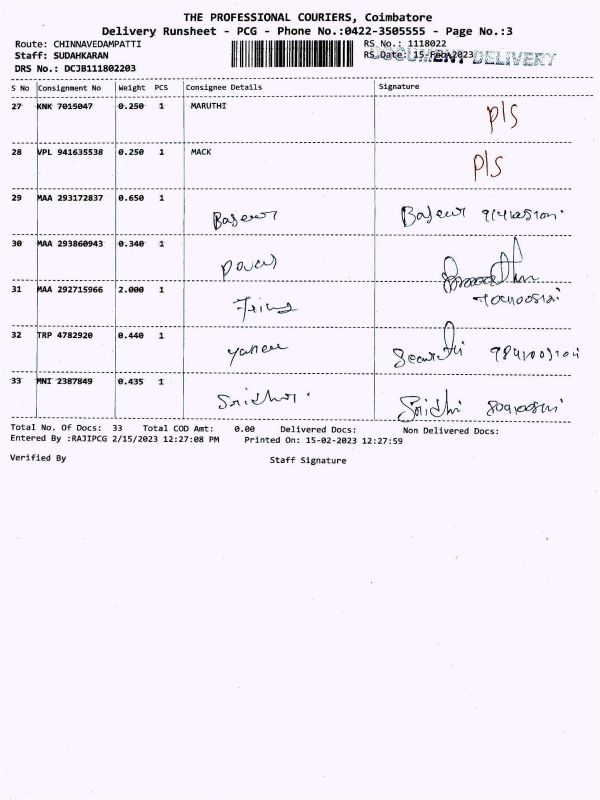 THE PROFESSIONAL COURIERS, Coimbatore
Delivery Runsheet - PCG - Phone No.:0422-3505555 - Page No.:3
Route: CHINNAVEDAMPATTI
RS No.: 1118022
Staff: SUDAHKARAN
RS Date: 15-Feb-2023
DOCUMENT DELIVERY
DRS No.: DCJB111802203
S No Consignment No Weight PCS Consignee Details Signature
27 KNK 7015047 0.250 1 MARUTHI P/S
28 VPL 941635538 0.250 1 MACK P/S
29 MAA 293172837 0.650 1
30 MAA 293860943 0.340 1
31 MAA 292715966 2.000 1
32 TRP 4782920 0.440 1
33 MNI 2387849 0.435 1
Total No. Of Docs: 33 Total COD Amt: 0.00 Delivered Docs: Non Delivered Docs:
Entered By :RAJIPCG 2/15/2023 12:27:08 PM Printed On: 15-02-2023 12:27:59
Verified By Staff Signature